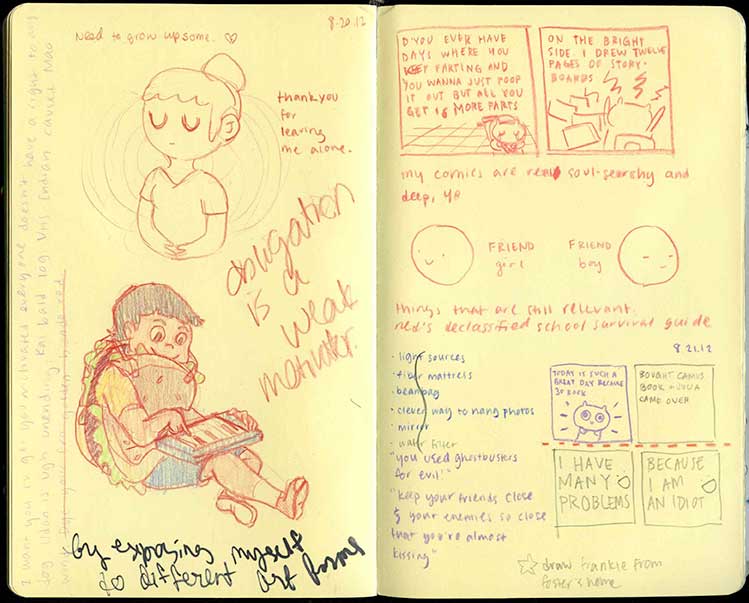 8.20.12
need to grow up some. ♡
thank you
for
leaving
me alone.
obligation
is a
weak
motivator.
by exposing myself
to different art forms
D'YOU EVER HAVE
DAYS WHERE YOU
KEEP FARTING AND
YOU WANNA JUST POOP
IT OUT BUT ALL YOU
GET IS MORE FARTS
ON THE BRIGHT
SIDE, I DREW TWELVE
PAGES OF STORY-
BOARDS
my comics are real soul-searchy and
deep, yo
FRIEND
girl
FRIEND
boy
things that are still relevant:
ned's declassified school survival guide
8.21.12
· light sources
· fiber mattress
· beanbag
· clever way to hang photos
· mirror
· water filter
"you used ghostbusters
for evil!"
"keep your friends close
& your enemies so close
that you're almost
kissing"
TODAY IS SUCH A
GREAT DAY BECAUSE
BOUGHT CAMUS
BOOK +
CAME OVER
I HAVE
MANY
PROBLEMS
BECAUSE
I AM
AN IDIOT
☆ draw frankie from
foster's home